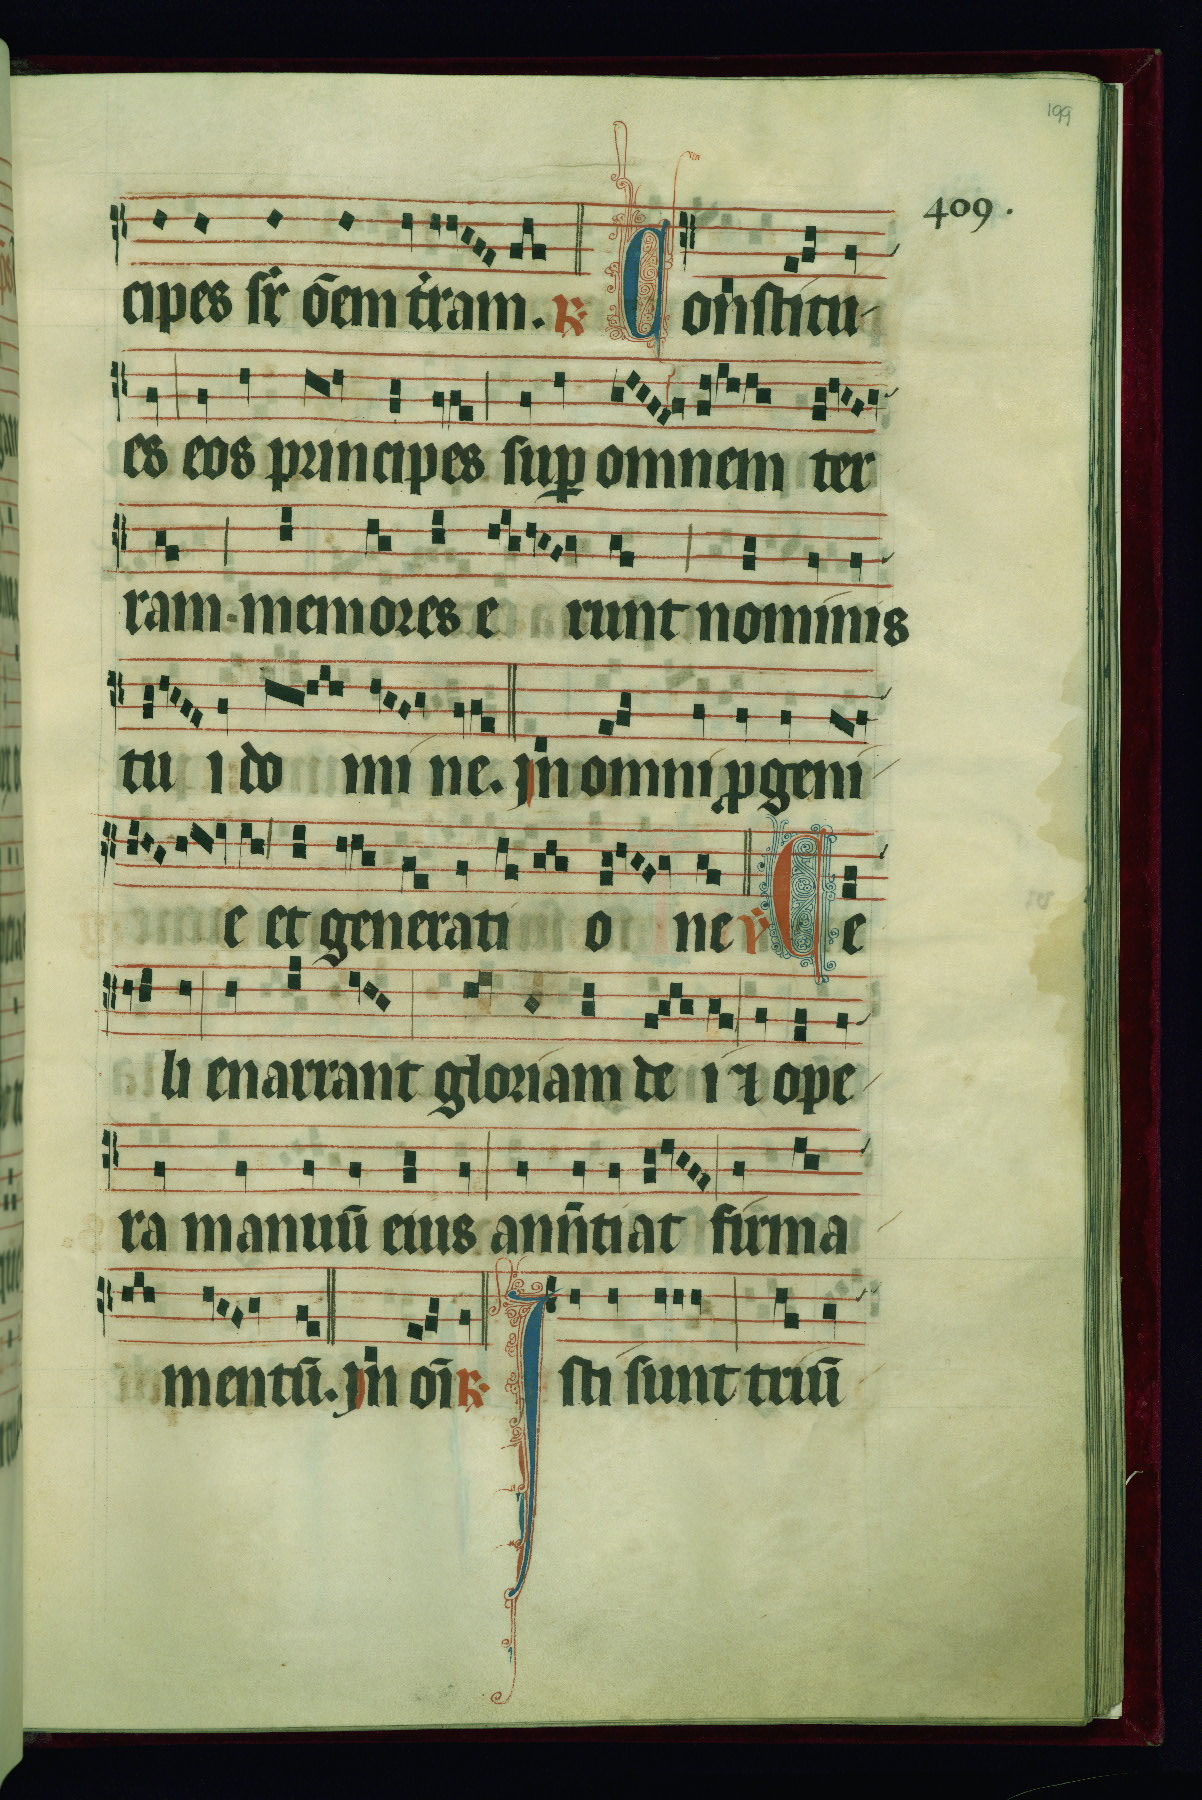 199
409.
cipes sr̄ ōem t̄ram. ℟ Constitu-
es eos principes suꝑ omnem ter
ram. memores e runt nominis
tu i do mi ne. jn omni ꝓgeni-
e et generati o ne ℣ Ce
li enarrant gloriam de i ⁊ ope-
ra manuū eius anūtiat firma-
mentū. jn oī ℟ Isti sunt triū